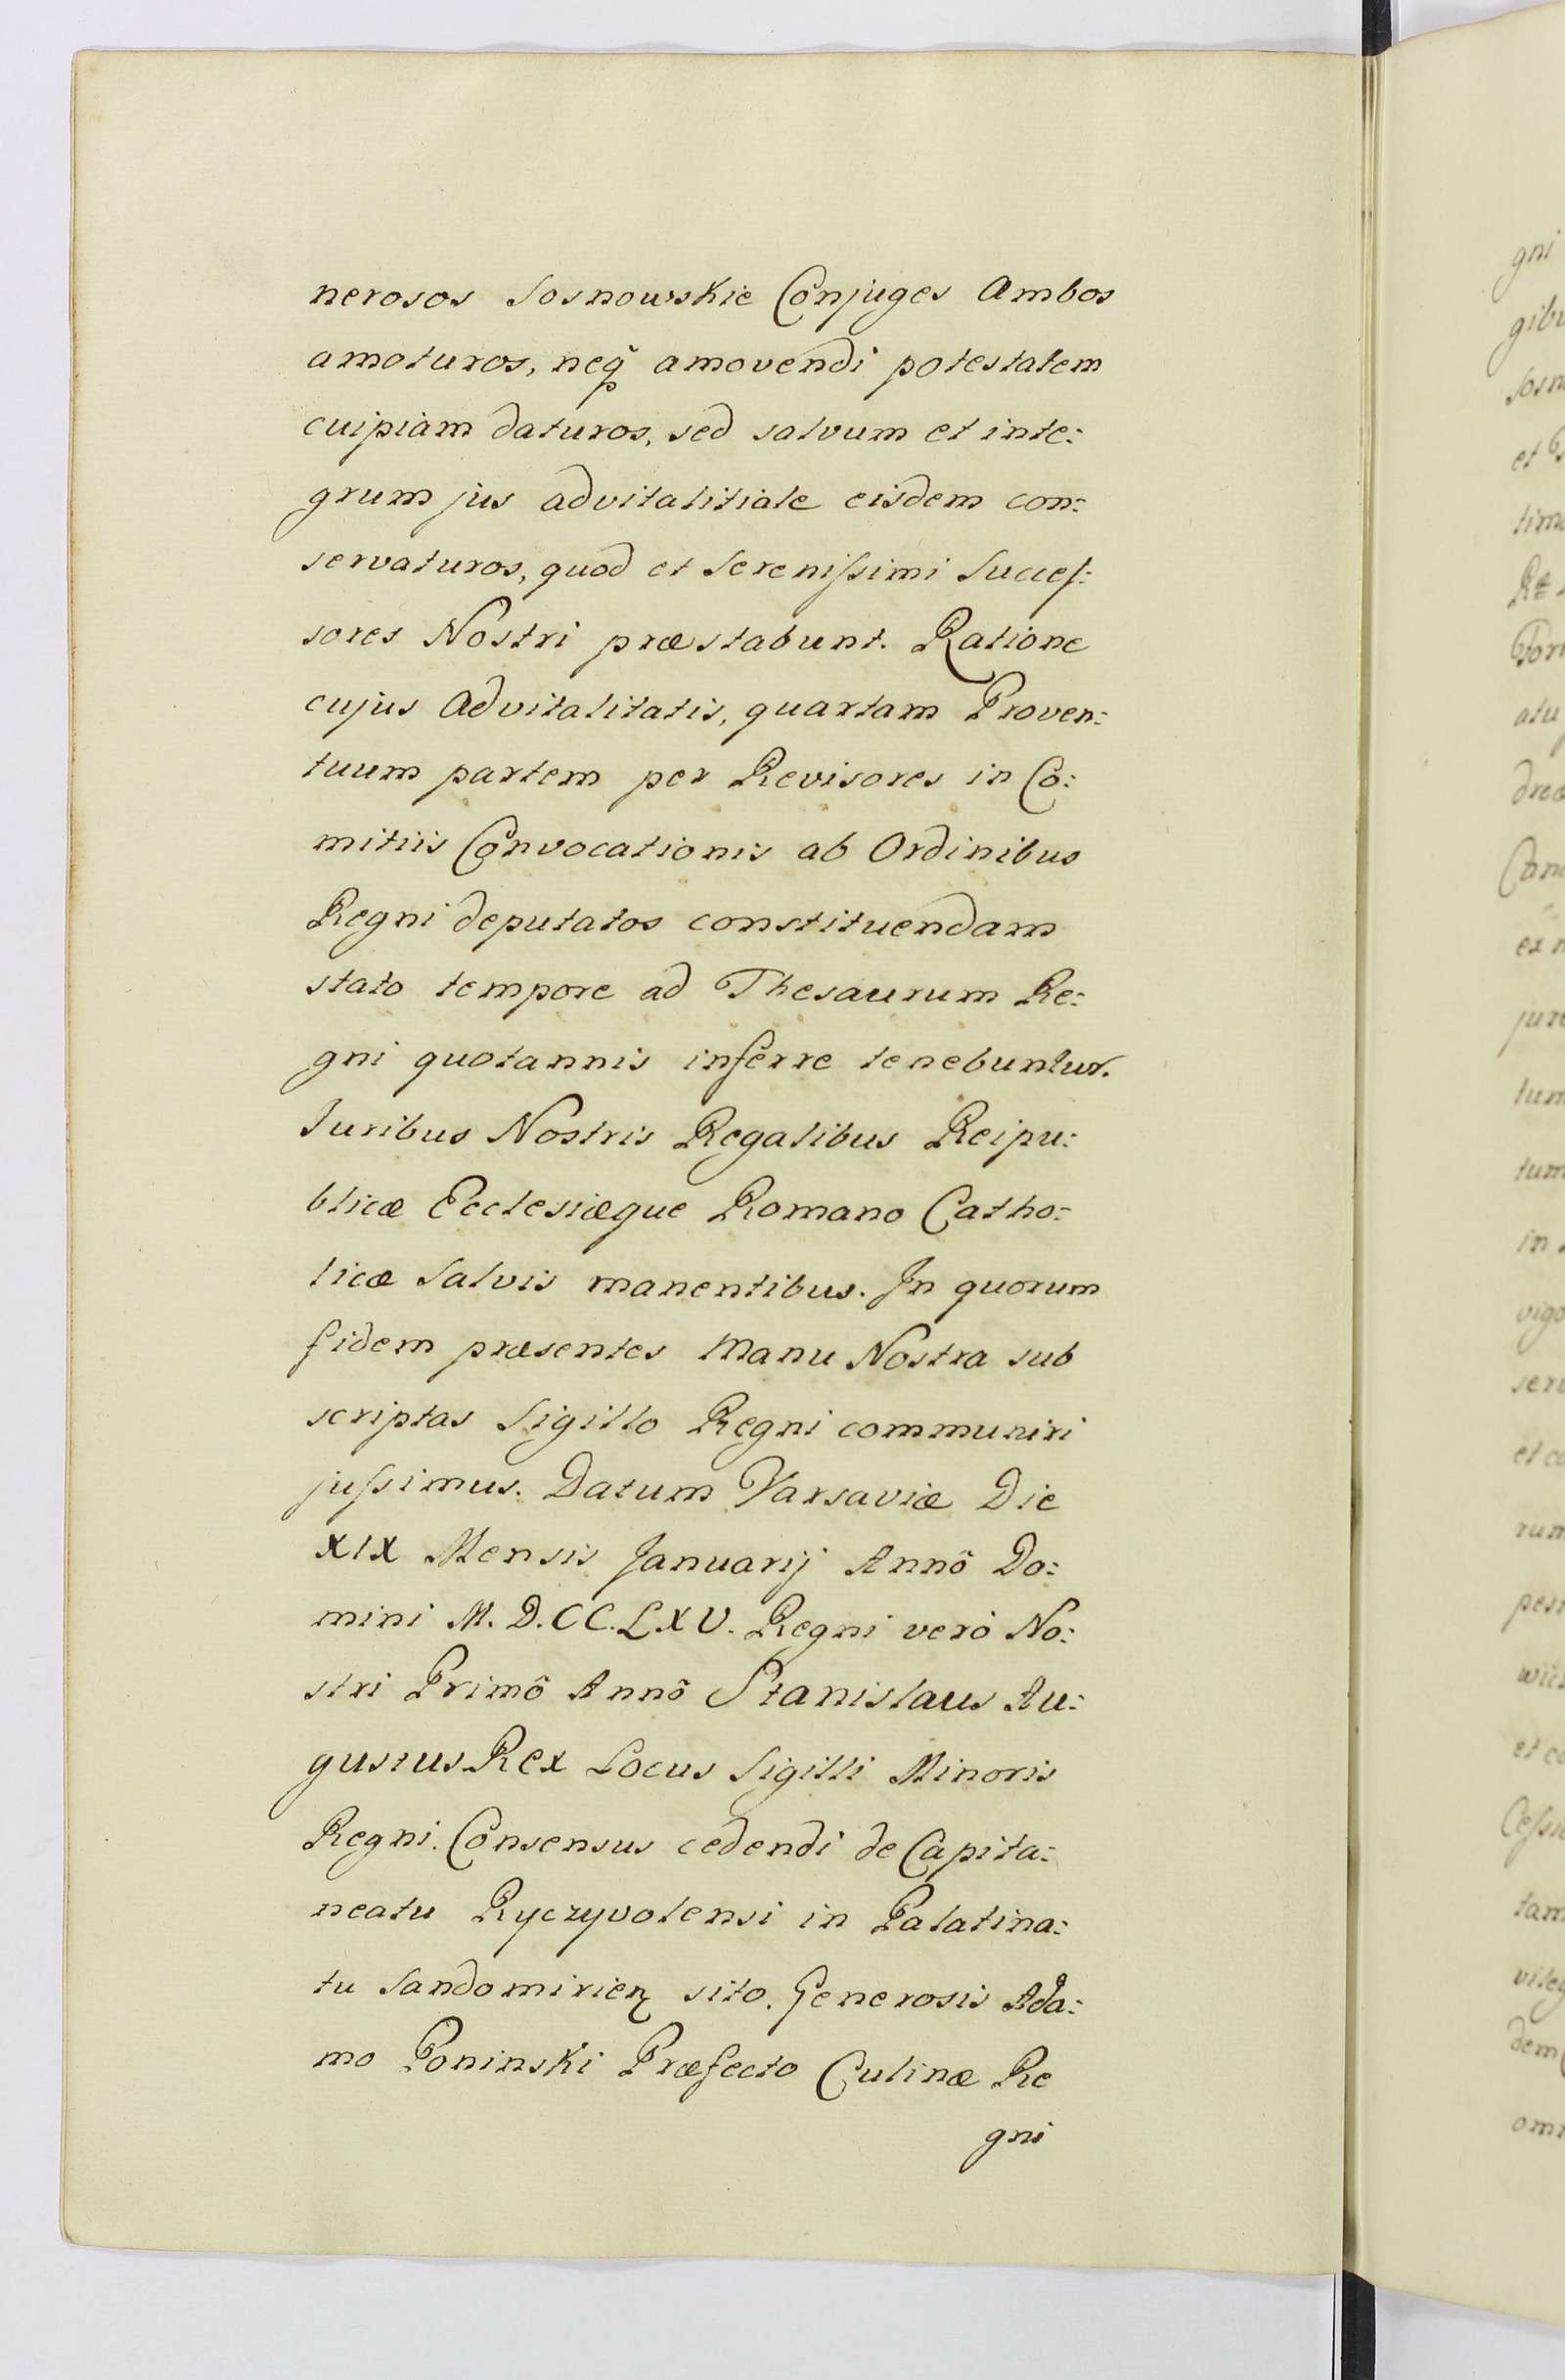 nerosos Sosnowskie Conjuges Ambos
amoturos, neq̃ amovendi potestatem
cuipiam daturos, sed salvum et inte:
grum jus advitalitiale eisdem con:
servaturos, quod et Sereniſsimi Succeſ:
sores Nostri præstabunt. Ratione
cujus Advitalitatis, quartam Proven:
tuum partem per Revisores in Co:
mitiis Convocationis ab Ordinibus
Regni deputatos constituendam
stato tempore ad Thesaurum Re:
gni quotannis inferre tenebuntur.
Juribus Nostris Regalibus Reipu:
blicæ Ecclesiæque Romano Catho:
licæ Salvis manentibus. In quorum
fidem præsentes Manu Nostra sub
scriptas Sigillo Regni communiri
juſsimus. Datum Varsaviæ Die
XIX Mensis Januarij Annô Do:
mini M. D. CC. LXV. Regni verò No:
stri Primô Annô Stanislaus Au:
gustus Rex Locus Sigilli Minoris
Regni. Consensus cedendi de Capita:
neatu Ryczyvolensi in Palatina:
tu Sandomirien sito. Generosis Ada:
mo Poninski Præfecto Culinæ Re
gni
gni
Sosn
jure
tum
vigo
et co